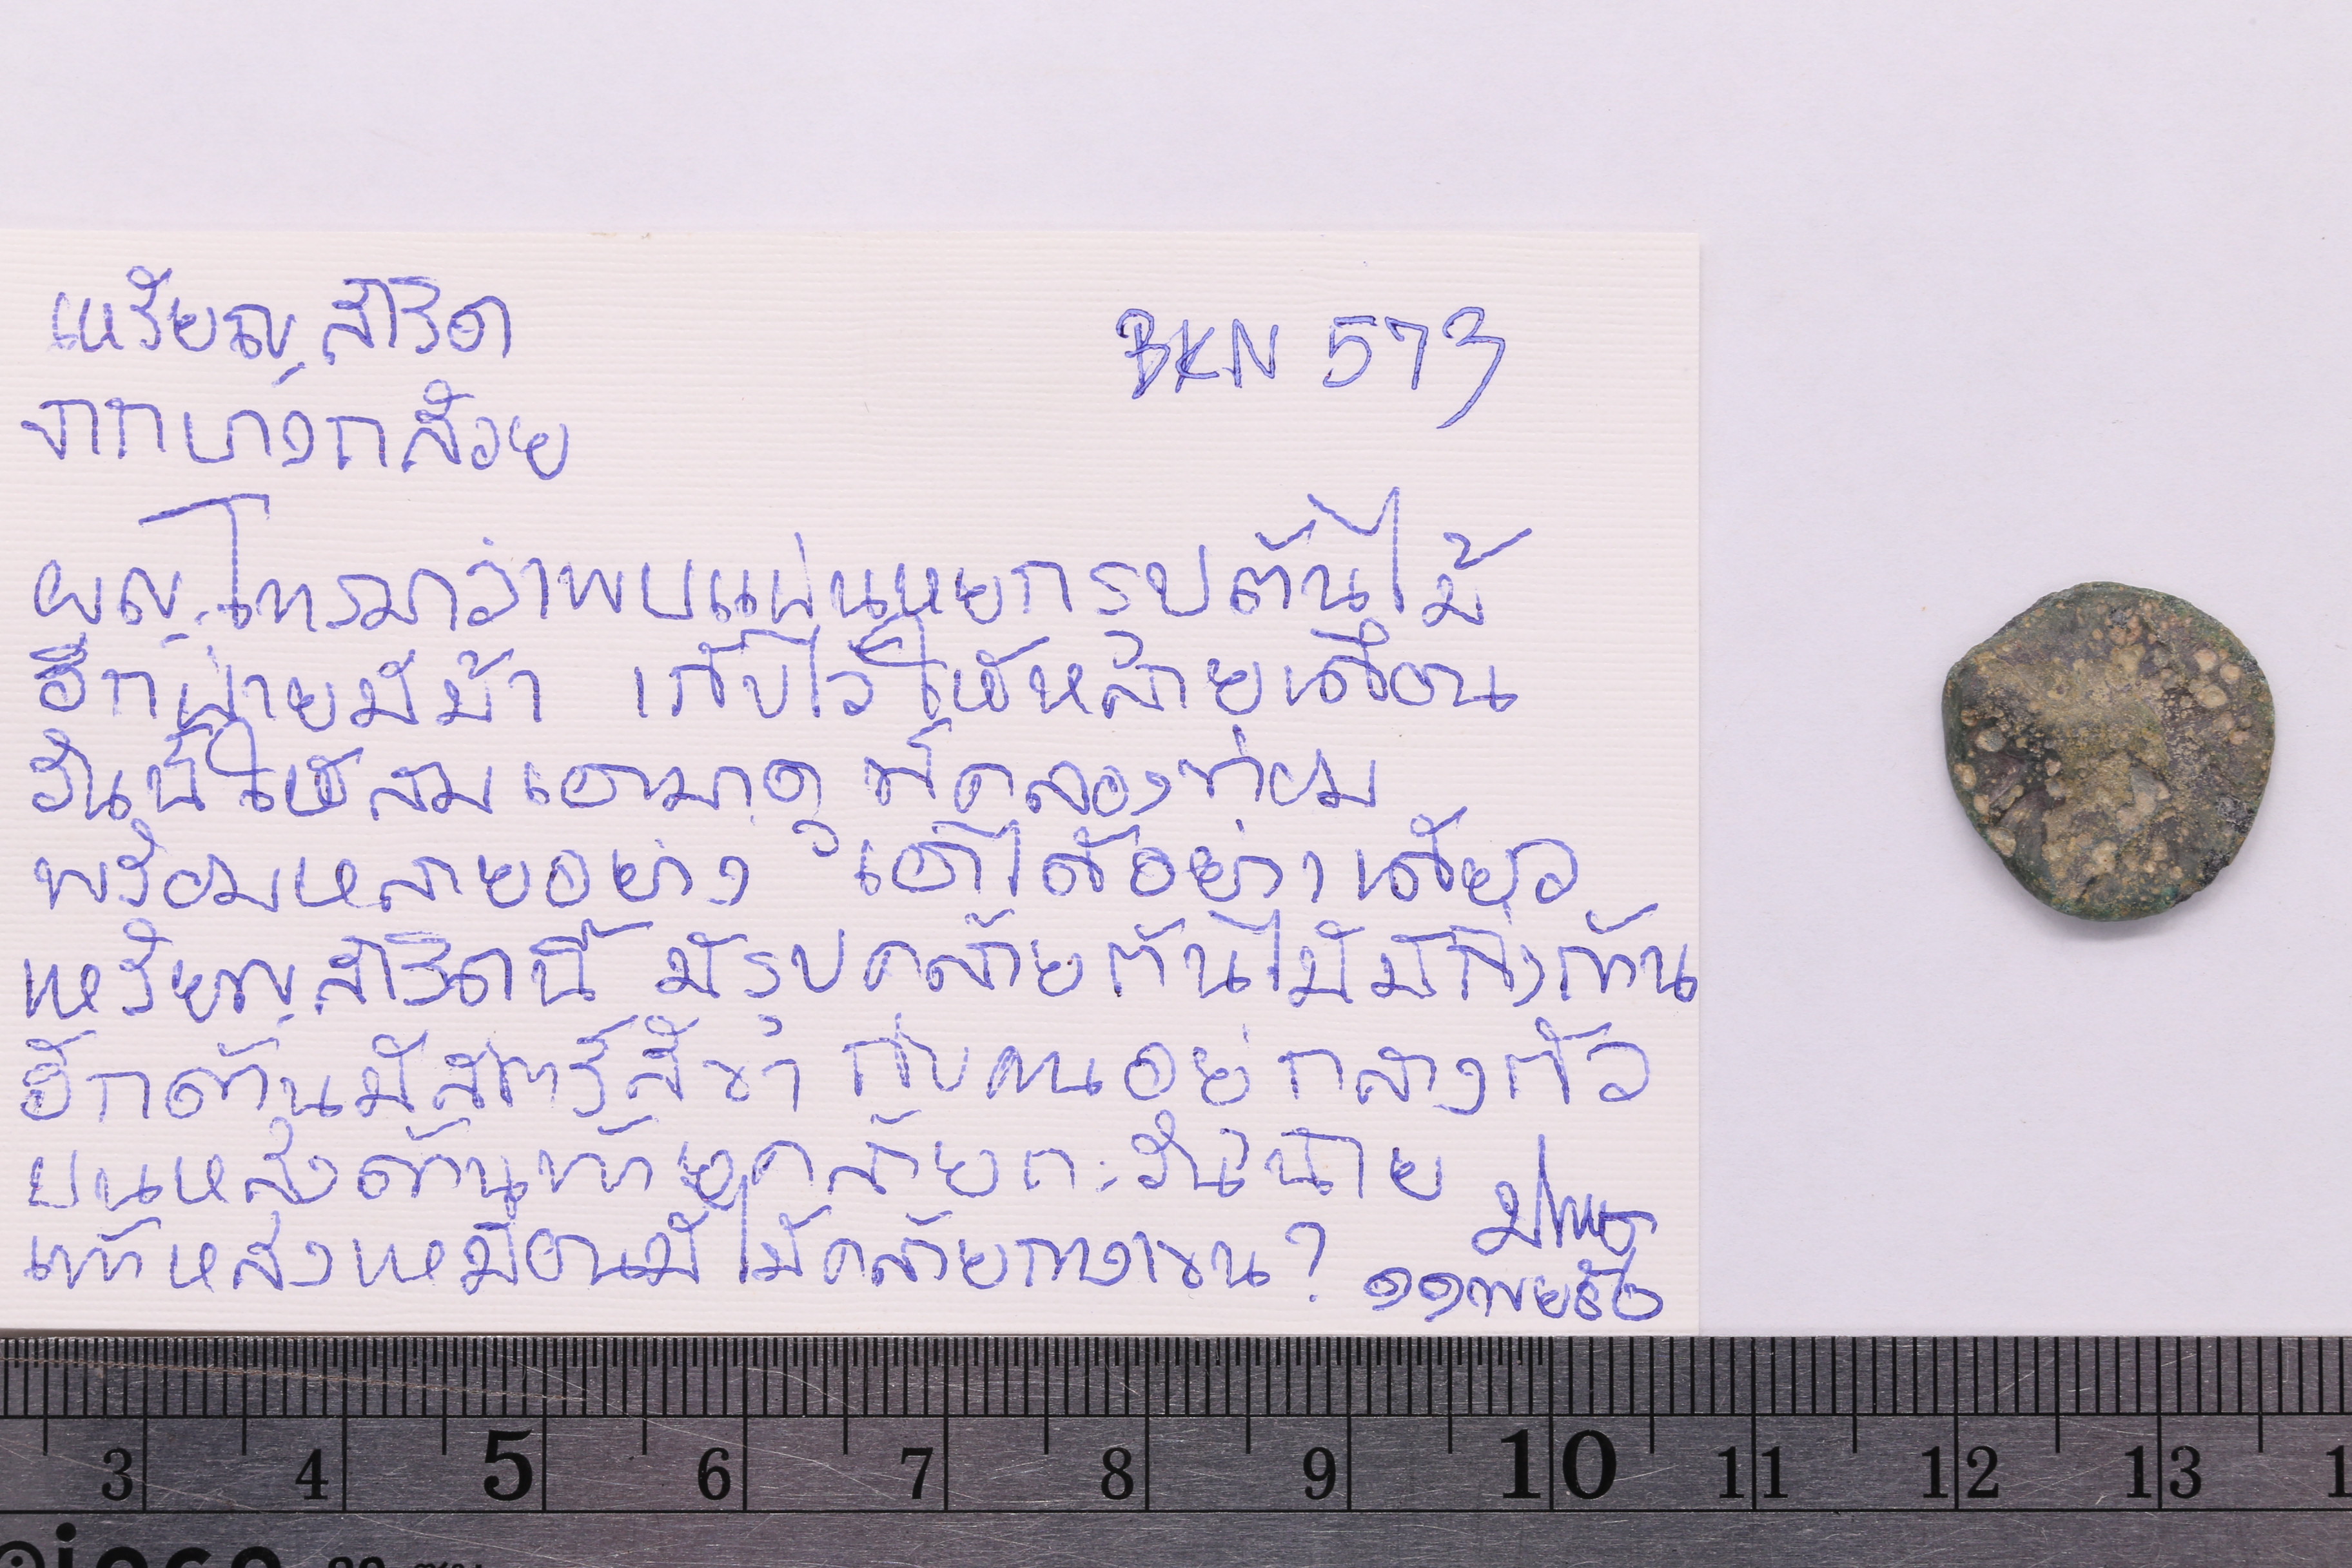 เหรียญสำริด
BKN 573
จากบางกล้วย
ผญ.โทรมาว่าพบแผ่นหยกรูปต้นไม้
อีกฝ่ายมีม้า เก็บไว้ให้หลายเดือน
วันนี้ให้ลมเอามาดู ที่คลองท่อม
พร้อมหลายอย่าง เอาไว้อย่างเดียว
เหรียญสำริดนี้ มีรูปคล้ายต้นไม้มีกิ่งก้าน
อีกด้านมีสัตว์สี่ขา กับคนอยู่กลางตัว
บนหลังด้านท้ายคล้ายตะวันฉาย
แท้หลังเหมือนมีไม้คล้ายกางเขน?
๑๑พย๕๖
3 4 5 6 7 8 9 10 11 12 13